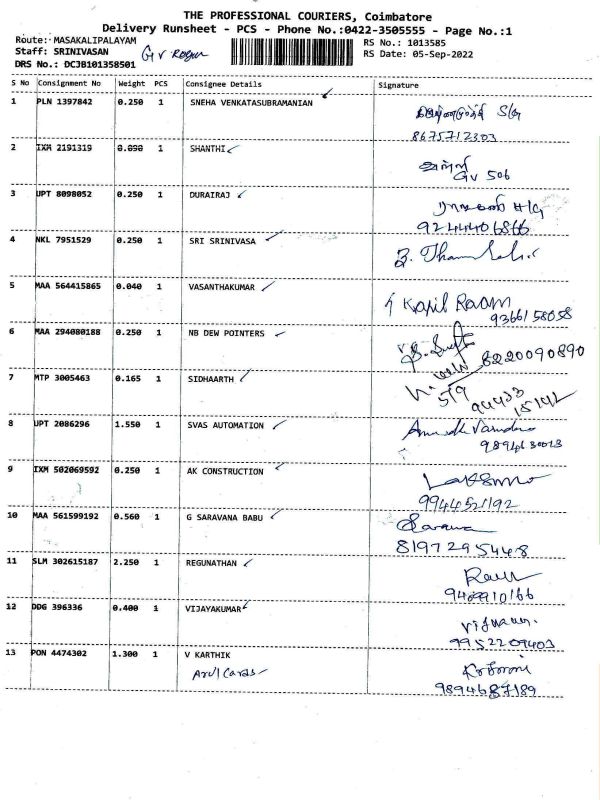 THE PROFESSIONAL COURIERS, Coimbatore
Delivery Runsheet - PCS - Phone No.:0422-3505555 - Page No.:1
Route: MASAKALIPALAYAM
RS No.: 1013585
Staff: SRINIVASAN
RS Date: 05-Sep-2022
DRS No.: DCJB101358501
S No Consignment No Weight PCS Consignee Details Signature
1 PLN 1397842 0.250 1 SNEHA VENKATASUBRAMANIAN
8675712303
2 IXM 2191319 0.090 1 SHANTHI
GV 506
3 UPT 8098052 0.250 1 DURAIRAJ
4 NKL 7951529 0.250 1 SRI SRINIVASA
5 MAA 564415865 0.040 1 VASANTHAKUMAR
Kapil Raam
9366158058
6 MAA 294080188 0.250 1 NB DEW POINTERS
8220090890
7 MTP 3005463 0.165 1 SIDHAARTH
519
8 UPT 2086296 1.550 1 SVAS AUTOMATION
9 IXM 502069592 0.250 1 AK CONSTRUCTION
9944521192
10 MAA 561599192 0.560 1 G SARAVANA BABU
8197295448
11 SLM 302615187 2.250 1 REGUNATHAN
12 DDG 396336 0.400 1 VIJAYAKUMAR
9952209403
13 PON 4474302 1.300 1 V KARTHIK
9894687189